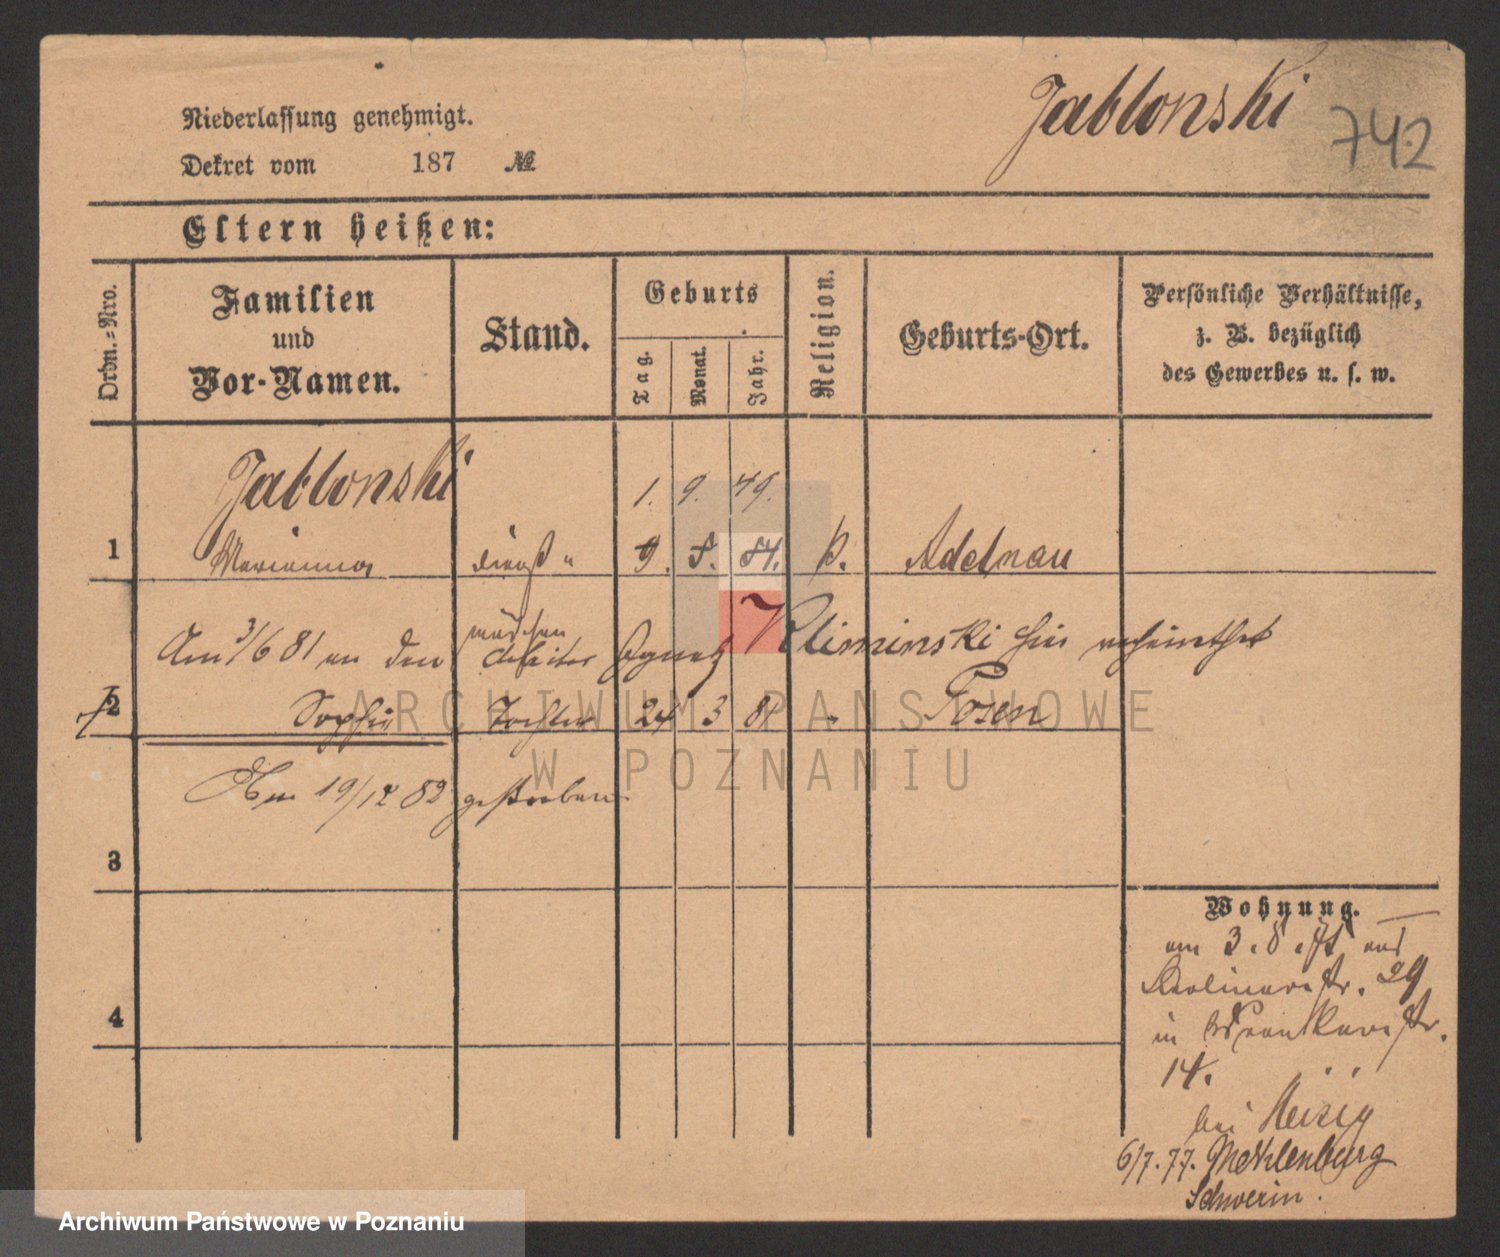 Jablonski 742
Niederlassung genehmigt.
Dekret vom 187 №
Eltern heißen:
Ordn.=Nro.
Familien
und
Vor-Namen.
Stand.
Geburts
Tag.
Monat.
Jahr.
Religion.
Geburts-Ort.
Persönliche Verhältnisse,
z. B. bezüglich
des Gewerbes u. s. w.
Jablonski 1. 9.
1 Marianna dienst " 9. 8. k. Adelnau
mädchen
Am 3/6 81 an den Arbeiter Ignatz Kliminski hier verheirathet
2 Sophie Tochter 24 3 81 " Posen
Am 19/12 82 gestorben
3
4
Wohnung.
am 3.8. aus
29
in
14.
bei
6/7. 77. Meklenburg
Schwerin.
ARCHIWUM PAŃSTWOWE
W POZNANIU
Archiwum Państwowe w Poznaniu